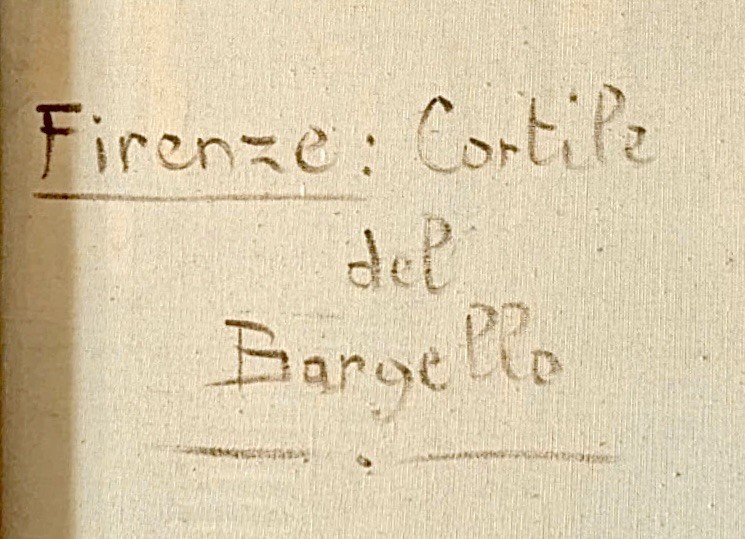 Firenze: Cortile
del
Bargello